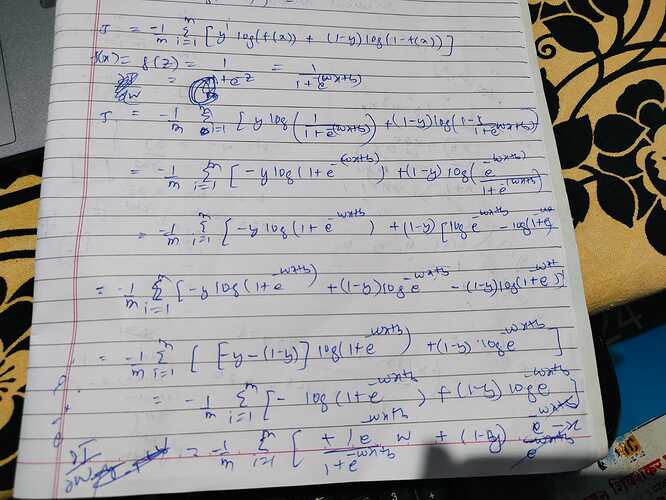 J = -1/m Σ_{i=1}^{m} [y^i log(f(x)) + (1-y) log(1-f(x))]
f(x) = g(z) = 1/(1+e^{-z}) = 1/(1+e^{-(wx+b)})
∂J/∂w =
J = -1/m Σ_{i=1}^{m} [y log(1/(1+e^{-(wx+b)})) + (1-y) log(1-1/(1+e^{-(wx+b)}))]
= -1/m Σ_{i=1}^{m} [-y log(1+e^{-(wx+b)}) + (1-y) log(e^{-(wx+b)}/(1+e^{-(wx+b)}))]
= -1/m Σ_{i=1}^{m} [-y log(1+e^{-wx+b}) + (1-y)[log e^{-wx+b} - log(1+e
= -1/m Σ_{i=1}^{m} [-y log(1+e^{-wx+b}) + (1-y) log e^{-wx+b} - (1-y) log(1+e^{-wx+b})]
= -1/m Σ_{i=1}^{m} [[-y-(1-y)] log(1+e^{-wx+b}) + (1-y) log e^{-wx+b}]
= -1/m Σ_{i=1}^{m} [-log(1+e^{-wx+b}) + (1-y) log e^{-wx+b}]
∂J/∂w = -1/m Σ_{i=1}^{m} [+1 e^{-wx+b} w/(1+e^{-wx+b}) + (1-y)